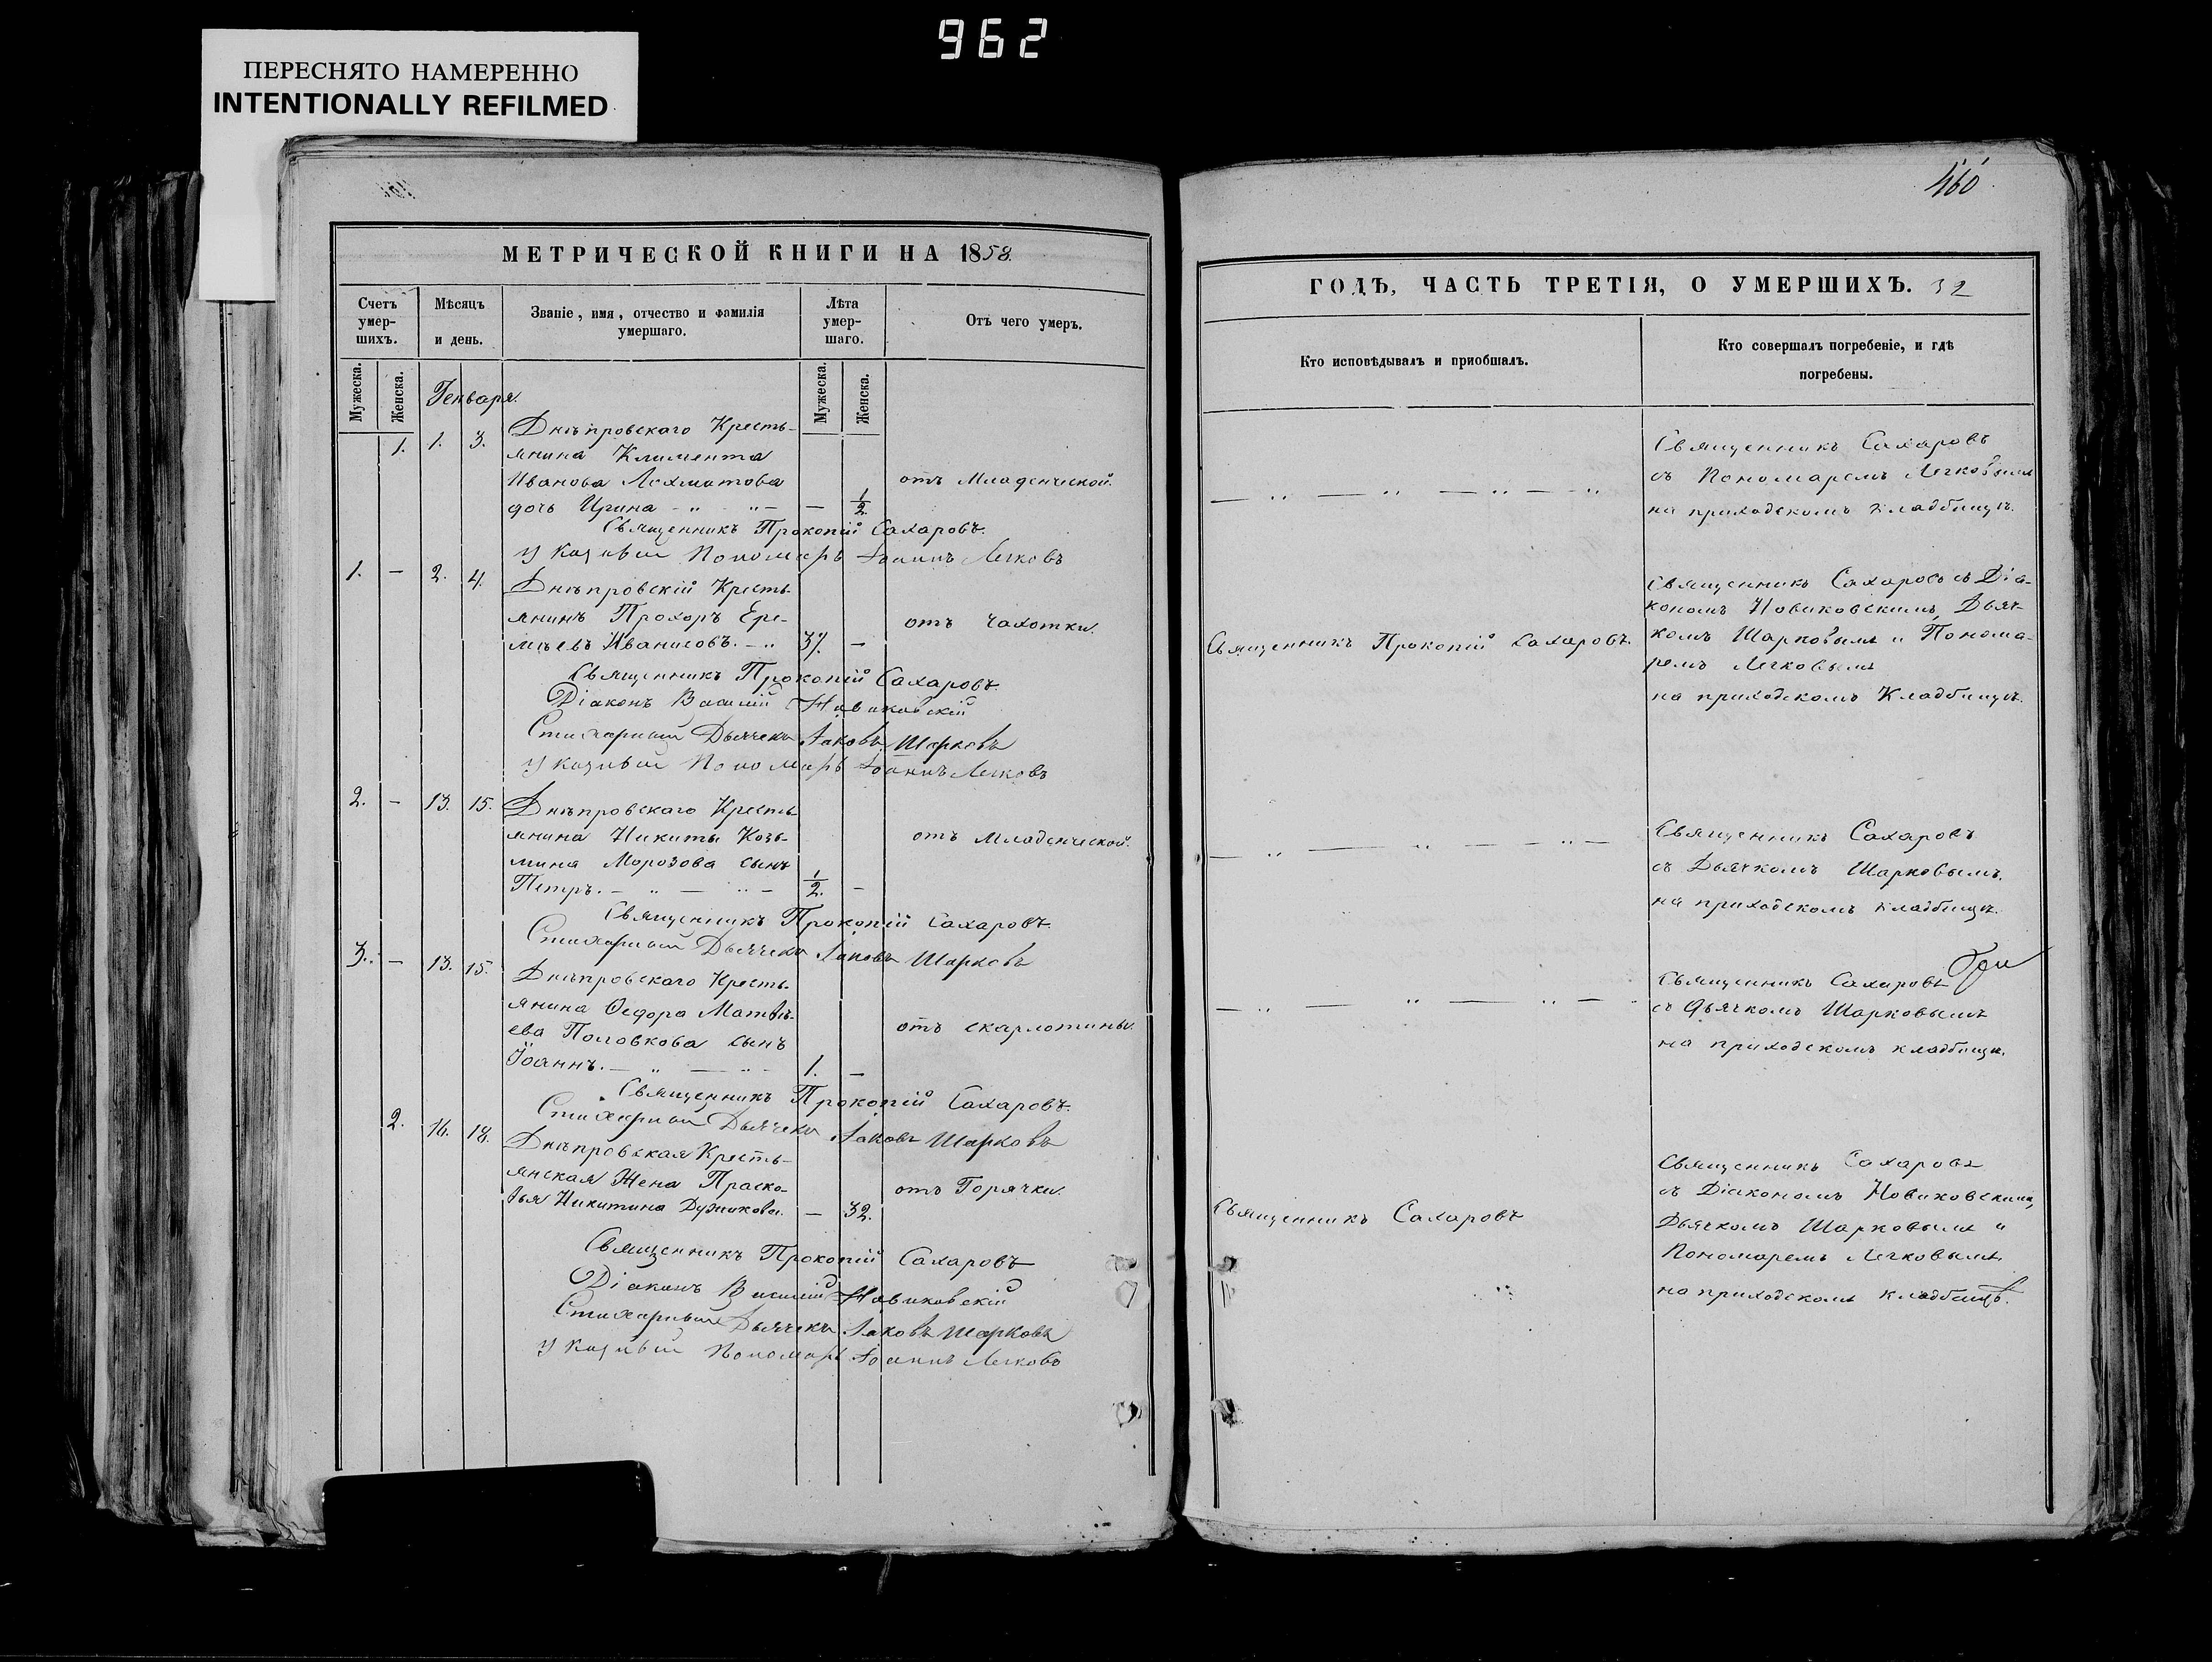 962
ПЕРЕСНЯТО НАМЕРЕННО
INTENTIONALLY REFILMED
МЕТРИЧЕСКОЙ КНИГИ НА 1858.
Счетъ умер-шихъ.
Мѣсяцъ и день.
Званіе, имя, отчество и фамилія умершаго.
Лѣта умер-шаго.
Отъ чего умеръ.
Мужеска.
Женска.
Мужеска.
Женска.
Генваря.
1. 1. 3. Днѣпровскаго Кресть-
янина Климента
Иванова Лохматова отъ Младенческой.
дочь Ирина - „ - „ - — 1/2.
Священникъ Прокопій Сахаровъ.
Указный Пономарь Іоаннъ Легковъ
1. — 2. 4. Днѣпровскій Кресть-
янинъ Прохоръ Ере- отъ Чахотки.
мѣевъ Иванисовъ. - „ 37. —
Священникъ Прокопій Сахаровъ.
Діаконъ Василій Новиковскій
Стихарный Дьячекъ Іаковъ Шарковъ
Указный Пономарь Іоаннъ Легковъ
2. — 13. 15. Днѣпровскаго Кресть-
янина Никиты Козь- отъ Младенческой.
мина Морозова сынъ
Петръ. — „ — „ — 1/2. —
Священникъ Прокопій Сахаровъ.
Стихарный Дьячекъ Іаковъ Шарковъ
3. — 13. 15. Днѣпровскаго Кресть-
янина Ѳедора Матвѣ-
ева Половкова сынъ отъ скарлотины.
Іоаннъ. — „ — „ - 1. —
Священникъ Прокопій Сахаровъ.
Стихарный Дьячекъ Іаковъ Шарковъ
2. 16. 18. Днѣпровская Кресть-
янская Жена Праско- отъ Горячки.
вья Никитина — 32.
Священникъ Прокопій Сахаровъ
Діаконъ Василій Новиковскій
Стихарный Дьячекъ Іаковъ Шарковъ
Указный Пономарь Іоаннъ Легковъ
460
ГОДЪ, ЧАСТЬ ТРЕТІЯ, О УМЕРШИХЪ. 32
Кто исповѣдывалъ и пріобщалъ.
Кто совершалъ погребеніе, и гдѣ погребены.
Священникъ Сахаровъ
съ Пономаремъ Легковымъ
— „ — „ — „ — „
на приходскомъ кладбищѣ.
Священникъ Сахаровъ съ Діа-
кономъ Новиковскимъ, Дьяч-
Священникъ Прокопій Сахаровъ. комъ Шарковымъ и Понома-
ремъ Легковымъ
на приходскомъ Кладбищѣ.
Священникъ Сахаровъ
— „ — „ — — „ —
съ Дьячкомъ Шарковымъ.
на приходскомъ кладбищѣ.
Священникъ Сахаровъ
— „ — „ — „ — „
съ дьячкомъ Шарковымъ
на приходскомъ кладбищѣ.
Священникъ Сахаровъ
съ Діакономъ Новиковскимъ,
Священникъ Сахаровъ Дьячкомъ Шарковымъ и
Пономаремъ Легковымъ
на приходскомъ кладбищѣ.